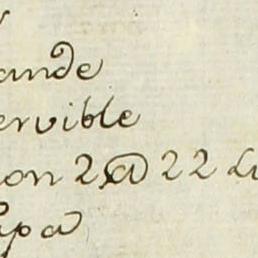 ande
ervible
on 2@ 22 Li
ipa